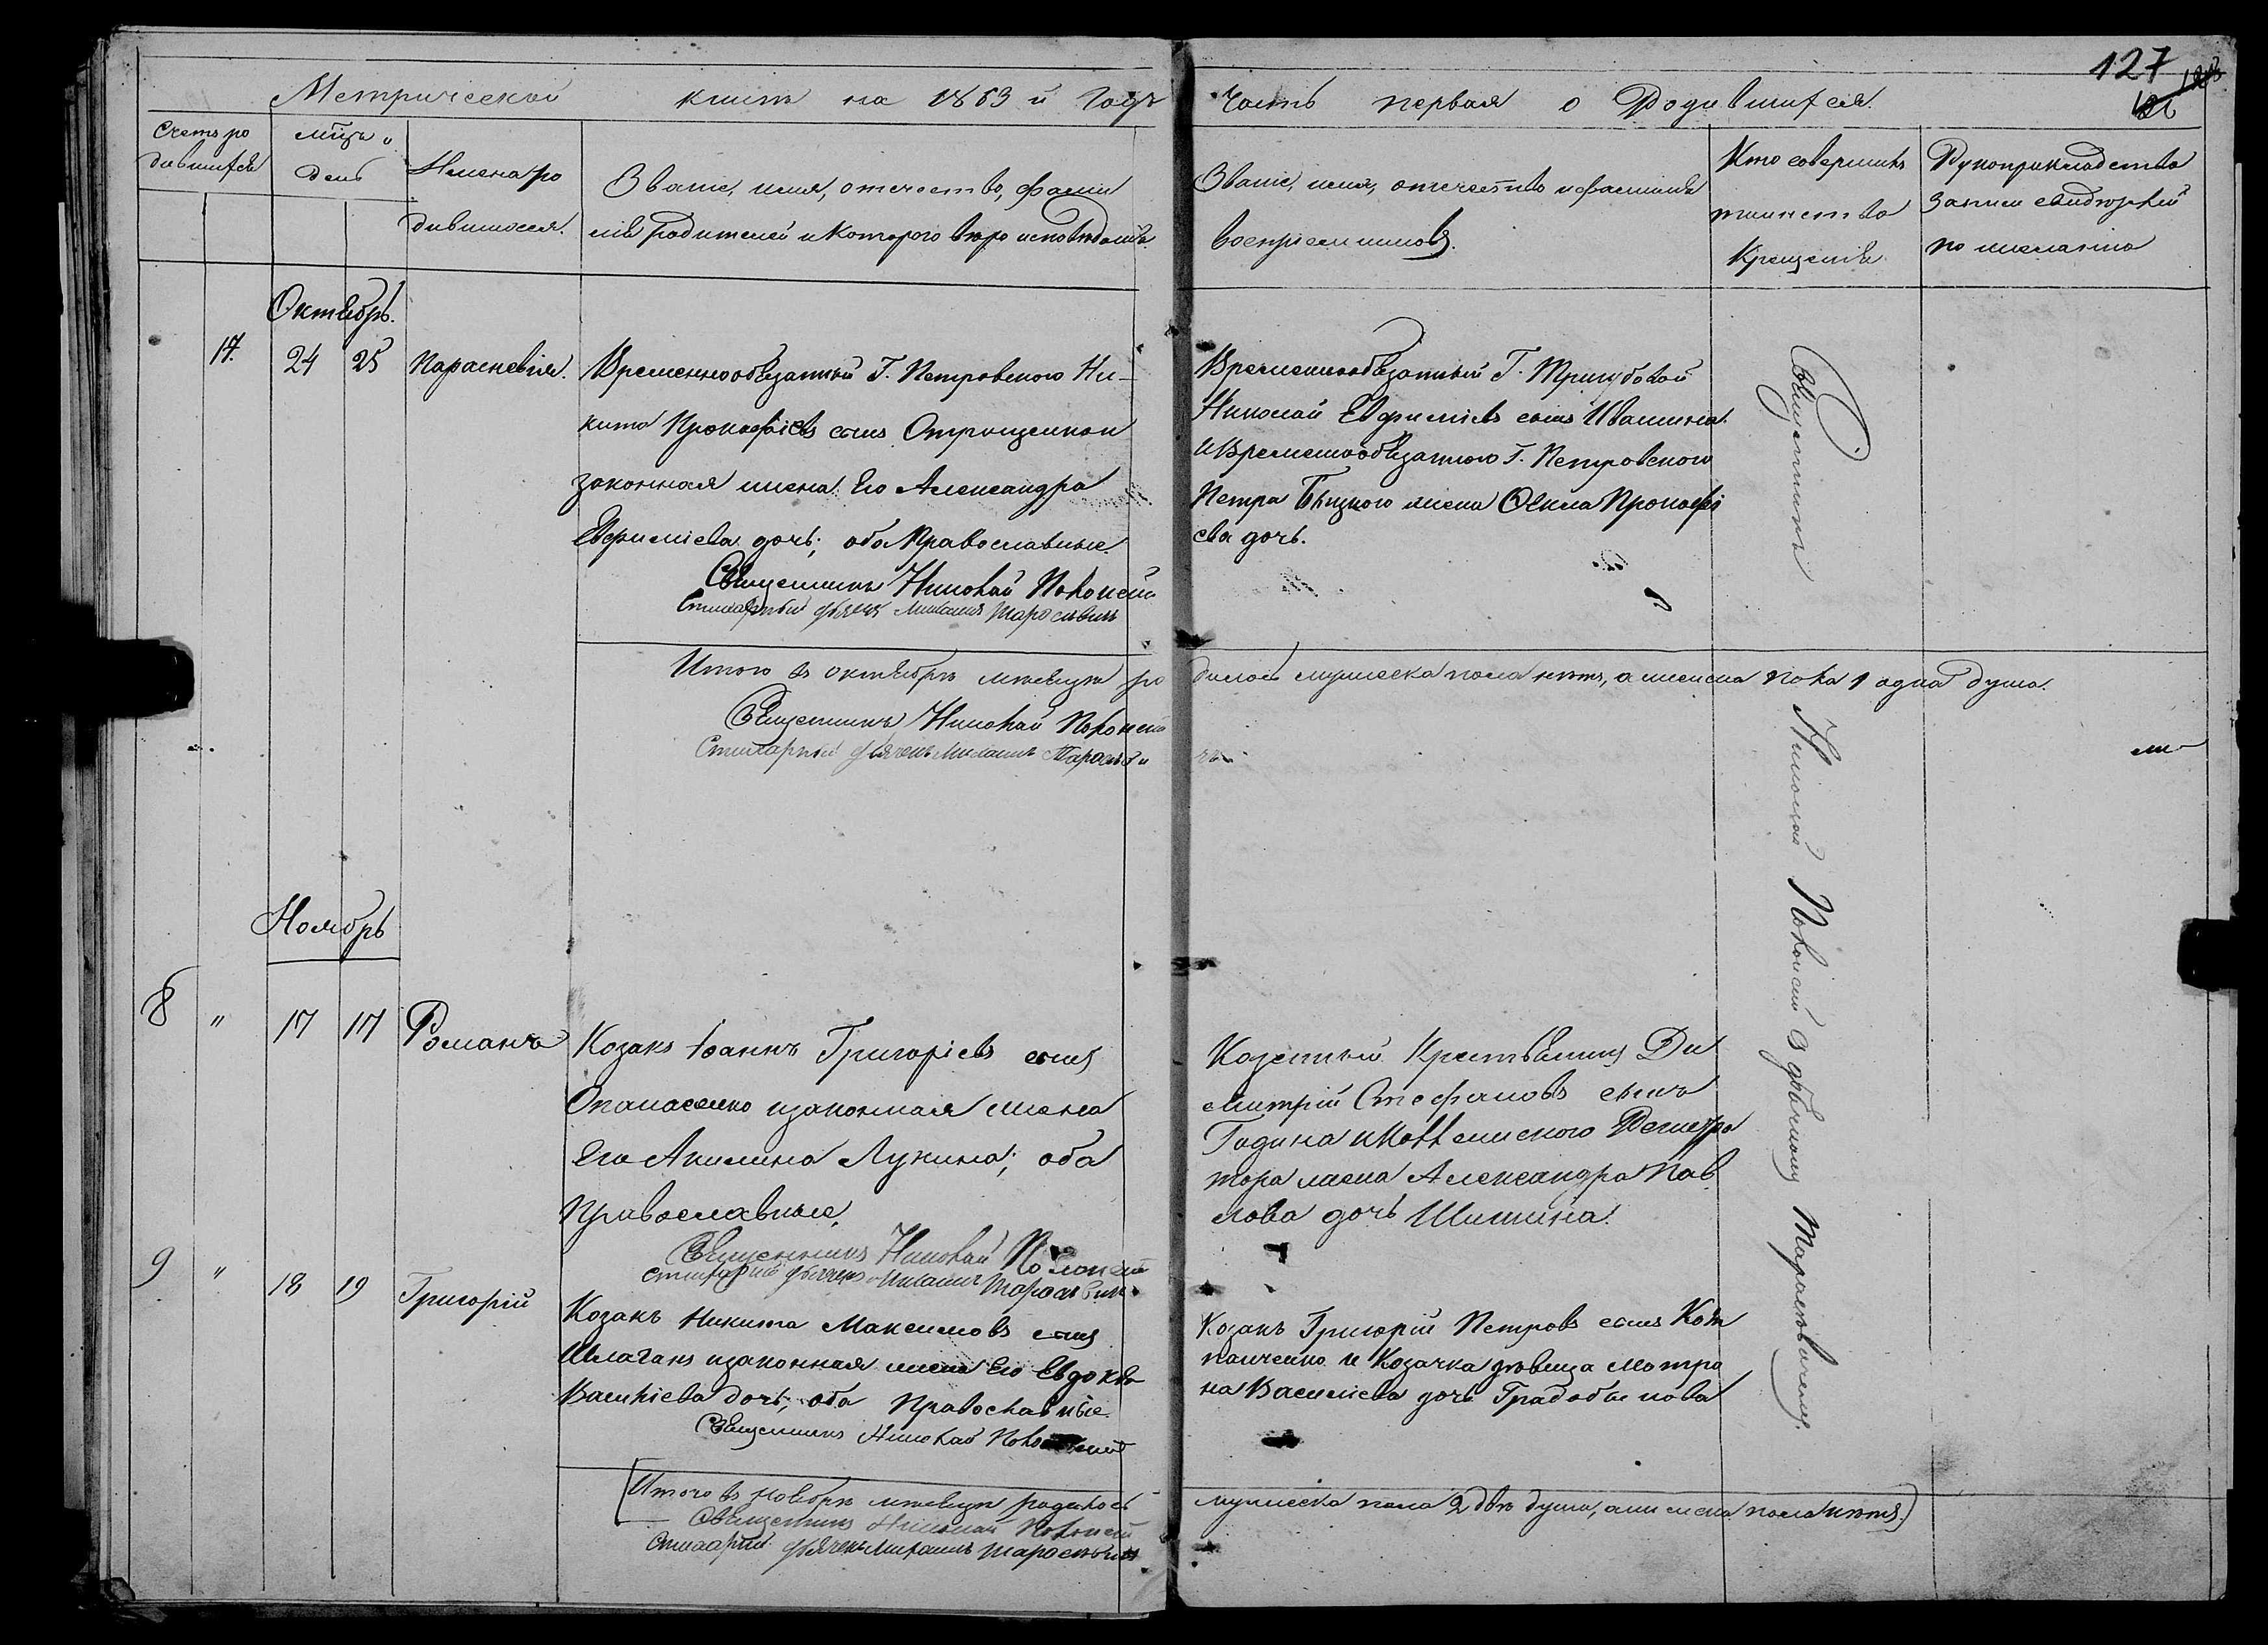 127
Метрической книги на 1863 й Годъ
Часть первая о Родившихся.
Счетъ ро
дившихся
мцъ и
день
Имена ро
дившихся.
Званіе, имя, отечество, фами
лія родителей и которого вѣро исповѣданія.
Званіе, имя, отечество и фамилія
воспріемниковъ.
Кто совершилъ
таинство
Крещенія
Рукоприкладство
записи свидѣтелей
по желанію
Октябрь.
17. 24 25 Параскевія.
Временнообязанный Г. Петровского Ни-
кита Прокофіевъ сынъ Отрощенко и
законная жена Его Александра
Евфиміева дочь; оба Православные.
Священникъ Николай Полонскій
Стихарный дьячекъ Михаилъ Тарасевичъ
Временнообязанный Г. Тригубовой
Николай Евфиміевъ сынъ Ивашина
и Временнообязанного Г. Петровского
Петра жена Ѳекла Прокофі
ева дочь.
Итого въ октябрѣ мѣсяцѣ ро
дилось мужеска пола нѣтъ, а женска пола 1 одна душа.
Священникъ Николай Полонскій
Стихарный дьячекъ Михаилъ Тарасеви
чъ
Ноябрь
8 " 17 17 Романъ
Козакъ Іоаннъ Григоріевъ сынъ
Опанасенко и законная жена
Его Акилина Лукина; оба
Православные.
Священникъ Николай Полонскій
Стихарный дьячекъ Михаилъ Тарасевичъ
Козенный Крестьянинъ Ди
митрій Стефановъ сынъ
Година и Коллежского Регистра
тора жена Александра Пав
лова дочь Шишкина.
9 " 18 19 Григорій
Козакъ Никита Максимовъ сынъ
Шлаганъ и законная жена Его Евдокія
Василіева дочь; оба Православные.
Священникъ Николай Полонскій
Козакъ Григорій Петровъ сынъ Кот
панченко и Козачка дѣвица Мотро
на Василіева дочь Градобыкова
Итого въ ноябрѣ мѣсяцѣ родилось
мужеска пола 2 двѣ души, а женска пола нѣтъ.)
Священникъ Николай Полонскій
Стихарный дьячекъ Михаилъ Тарасевичъ
Священникъ Николай Полонскій съ дьячкомъ Тарасевичемъ.